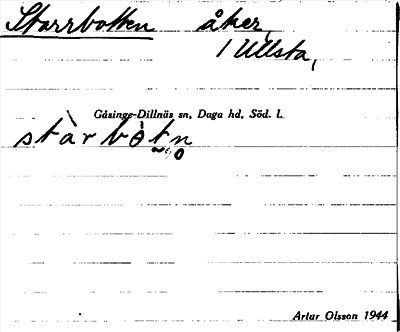 Starrbotten åker,
1 Ullsta,
Gåsinge-Dillnäs sn, Daga hd, Söd. l.
stàrbòtn̥
Artur Olsson 1944